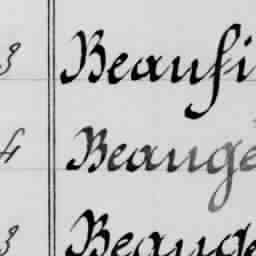 3 Beaufi
4 Beauge
3 Beauge